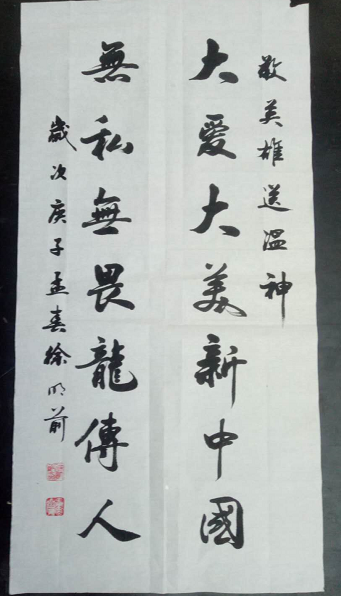 敬英雄送温神
大愛大美新中國
無私無畏龍傳人
歲次庚子孟春徐明前